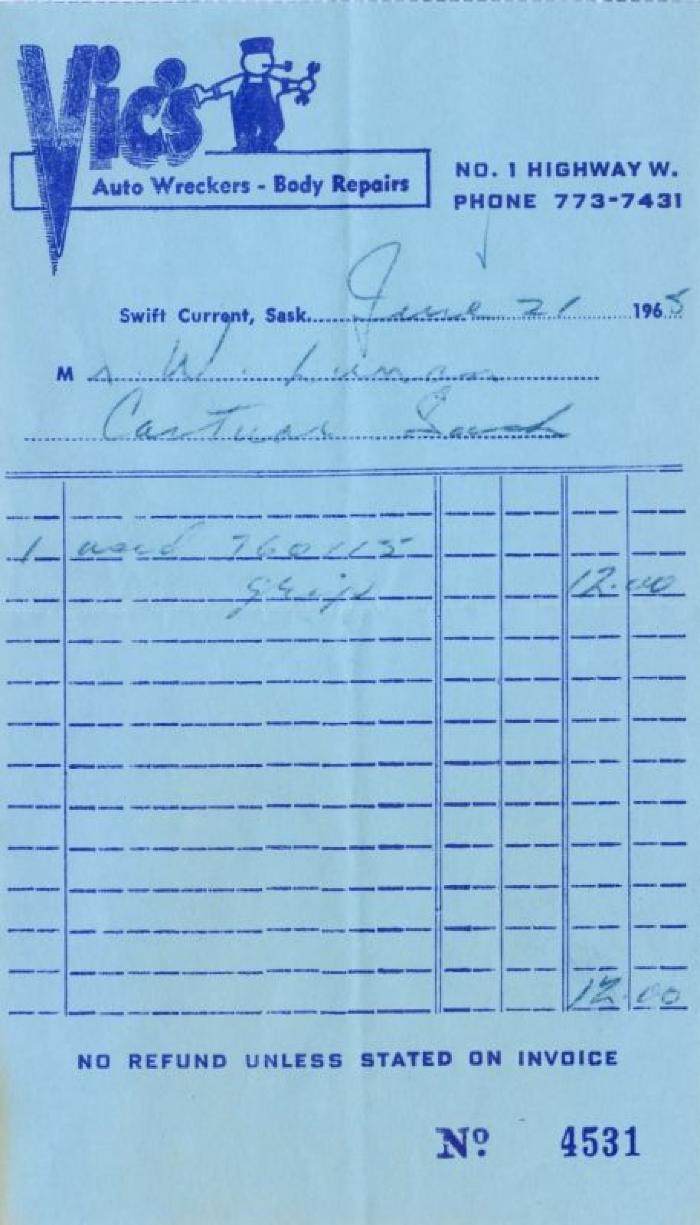 Vic's
Auto Wreckers - Body Repairs
NO. 1 HIGHWAY W.
PHONE 773-7431
Swift Current, Sask. June 21 1968
Mr. W.
Sask
1 used 760x15
grip 12.00
12.00
NO REFUND UNLESS STATED ON INVOICE
Nº 4531